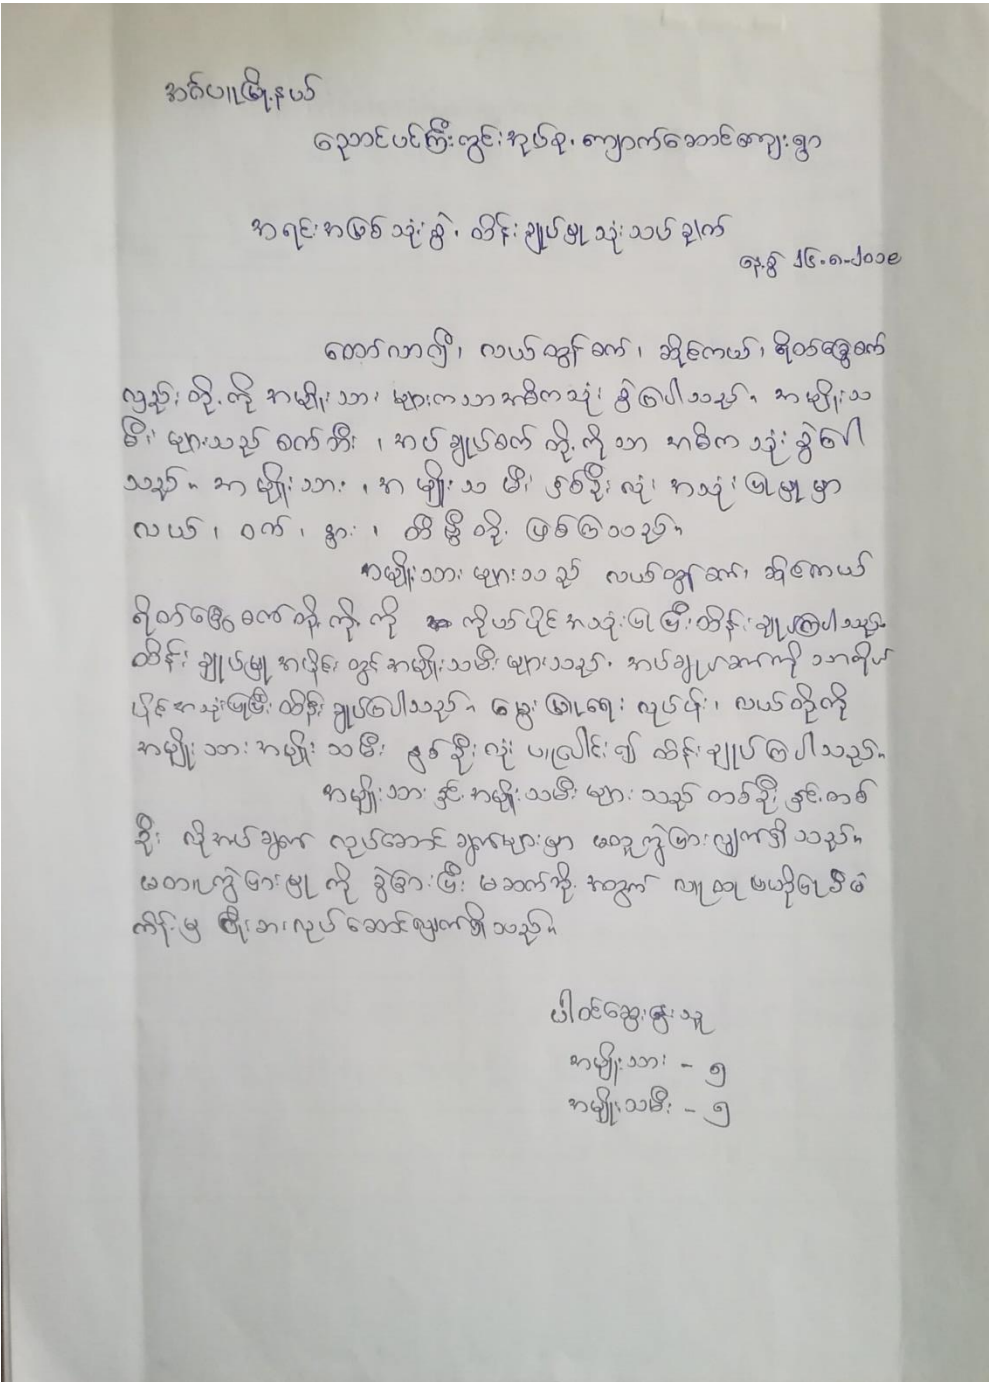 အင်ပူမြို့နယ်
ညောင်ပင်ကြီးကွင်းအုပ်စု၊ ကျောက်ဆောင်ကျေးရွာ
အရင်းအမြစ်သုံးစွဲ၊ ထိန်းချုပ်မှုသုံးသပ်ချက်
နေ့စွဲ ၁၄-၈-၂၀၁၉
ထော်လာဂျီ၊ လယ်ထွန်စက်၊ ဆိုင်ကယ်၊ ရိတ်ခြွေစက်
လှည်းတို့ကို အမျိုးသားများကသာအဓိကသုံးစွဲပါသည်။ အမျိုးသ
မီးများသည် စက်ဘီး၊ အပ်ချုပ်စက်တို့ကိုသာ အဓိကသုံးစွဲပါ
သည်။ အမျိုးသား၊ အမျိုးသမီးနှစ်ဦးလုံးအသုံးပြုမှုမှာ
လယ်၊ ဝက်၊ နွား၊ တီဗွီတို့ဖြစ်ကြသည်။
အမျိုးသားများသည် လယ်ထွန်စက်၊ ဆိုင်ကယ်
ရိတ်ခြွေစက်တို့ကို ကိုယ်ပိုင်အသုံးပြုပြီးထိန်းချုပ်ကြပါသည်။
ထိန်းချုပ်မှုအပိုင်းတွင်အမျိုးသမီးများသည် အပ်ချုပ်စက်ကိုသာကိုယ်
ပိုင်အသုံးပြုပြီးထိန်းချုပ်ပါသည်။ မွေးမြူရေးလုပ်ငန်း၊ လယ်တို့ကို
အမျိုးသားအမျိုးသမီး နှစ်ဦးလုံး ပူးပေါင်း၍ ထိန်းချုပ်ကြပါသည်။
အမျိုးသားနှင့်အမျိုးသမီးများသည် တစ်ဦးနှင့်တစ်
ဦး လိုအပ်ချက် လုပ်ဆောင်ချက်များမှာ မတူကွဲပြားလျှက်ရှိသည်။
မတူကွဲပြားမှုကို ခွဲခြားပြီး မဆက်ဆံဘဲ
လုပ်ဆောင်လျှက်ရှိသည်။
ပါဝင်ဆွေးနွေးသူ
အမျိုးသား - ၅
အမျိုးသမီး - ၅